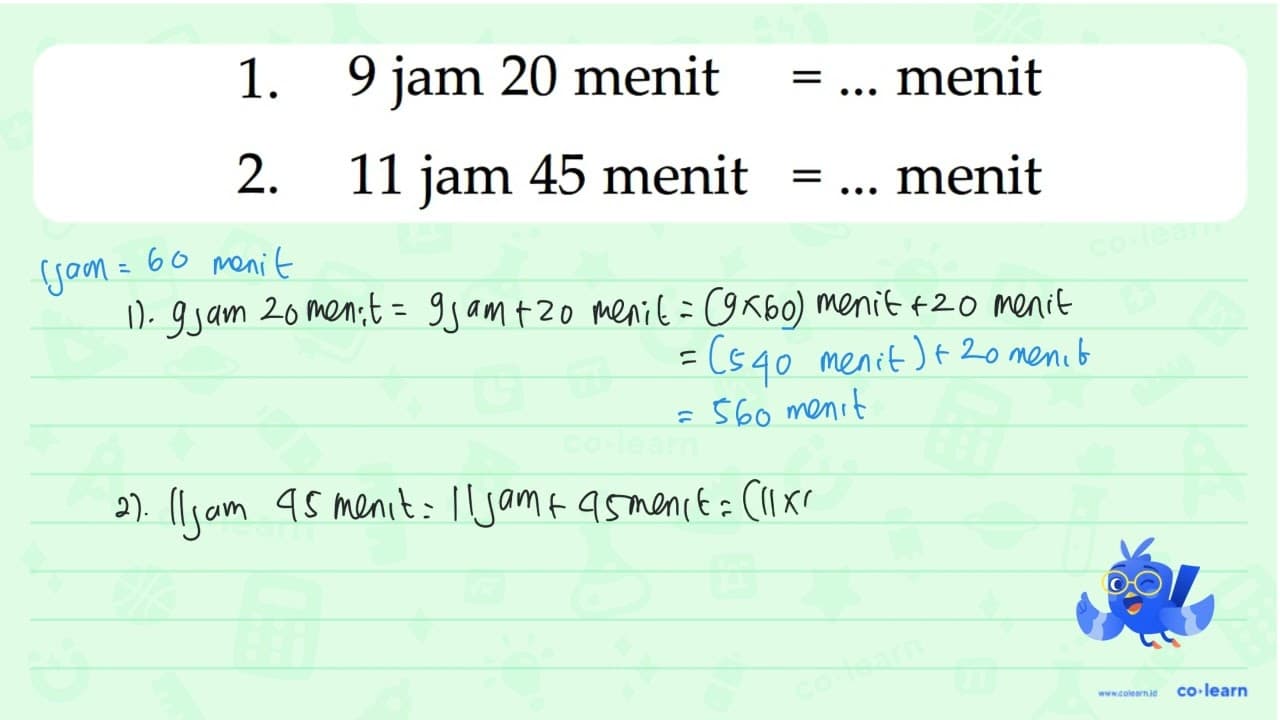 1. 9 jam 20 menit = ... menit
2. 11 jam 45 menit = ... menit
1 jam = 60 menit
1). 9 jam 20 menit = 9 jam + 20 menit = (9x60) menit + 20 menit
= (540 menit) + 20 menit
= 560 menit
2). 11 jam 45 menit = 11 jam + 45 menit = (11 x
www.colearn.id co·learn